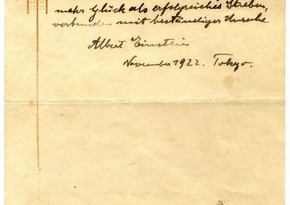 mehr Glück als erfolgreiches Streben,
verbunden mit beständiger Unruhe
Albert Einstein
November 1922. Tokyo.